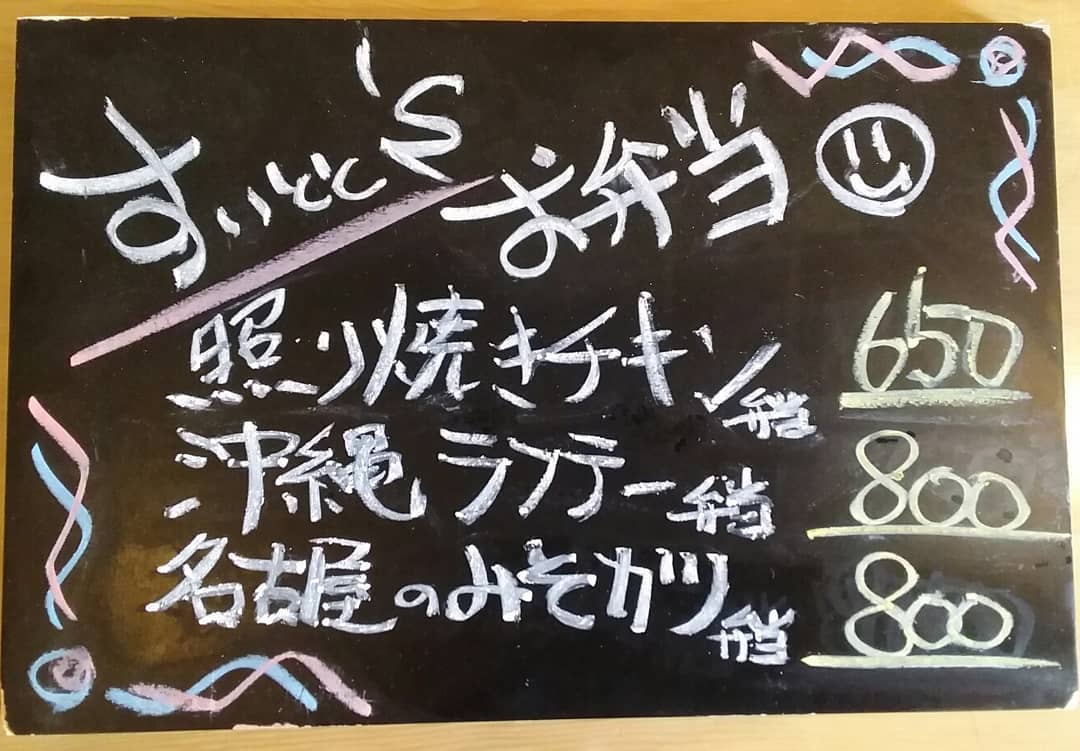 すいどく'S お弁当
照り焼きチキン弁当 650
沖縄ラフテー弁当 800
名古屋のみそカツ弁当 800